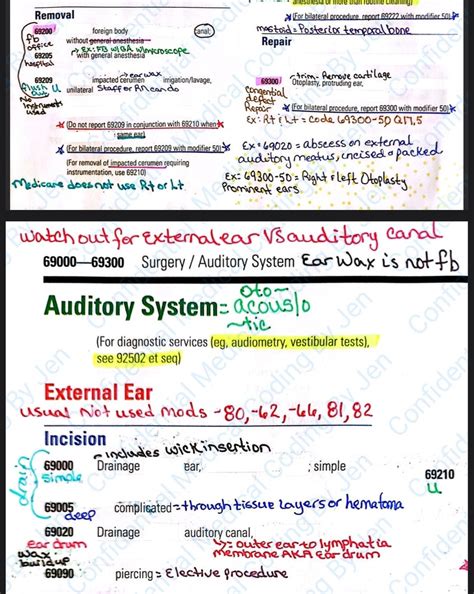 anesthesia or more than routine cleaning)
Removal
(For bilateral procedure, report 69222 with modifier 50)
mastoid = Posterior temporal bone
69200 foreign body canal;
fb
office
without general anesthesia
Ex: FB w/GA w/microscope
69205 with general anesthesia
hospital
Repair
ear wax
69209 impacted cerumen irrigation/lavage,
unilateral Staff or RN can do
flush U
out
No
instruments
used
trim - Remove cartilage
69300 Otoplasty, protruding ear,
Congenital
defect
Repair
(For bilateral procedure, report 69300 with modifier 50)
Ex: Rt & Lt = Code 69300-50
(Do not report 69209 in conjunction with 69210 when
same ear)
(For bilateral procedure, report 69209 with modifier 50)
(For removal of impacted cerumen requiring
instrumentation, use 69210)
Medicare does not use Rt or Lt
Ex: 69020 = abscess on external
auditory meatus, incised & packed
Ex: 69300-50 = Right & left Otoplasty
Prominent ears.
Watch out for External ear VS auditory canal
69000—69300 Surgery / Auditory System Ear Wax is not fb
oto~
Auditory System = acous/o
~tic
(For diagnostic services (eg, audiometry, vestibular tests),
see 92502 et seq)
External Ear
usual Not used mods -80,-62,-66, 81, 82
Incision
includes wick insertion
drain
69000 Drainage ear, ; simple
simple
69210
u
69005 complicated = through tissue layers or hematoma
deep
69020 Drainage auditory canal,
Ear drum
= outer ear to lymphatic
membrane AKA Ear drum
wax
buildup
69090 piercing = Elective procedure